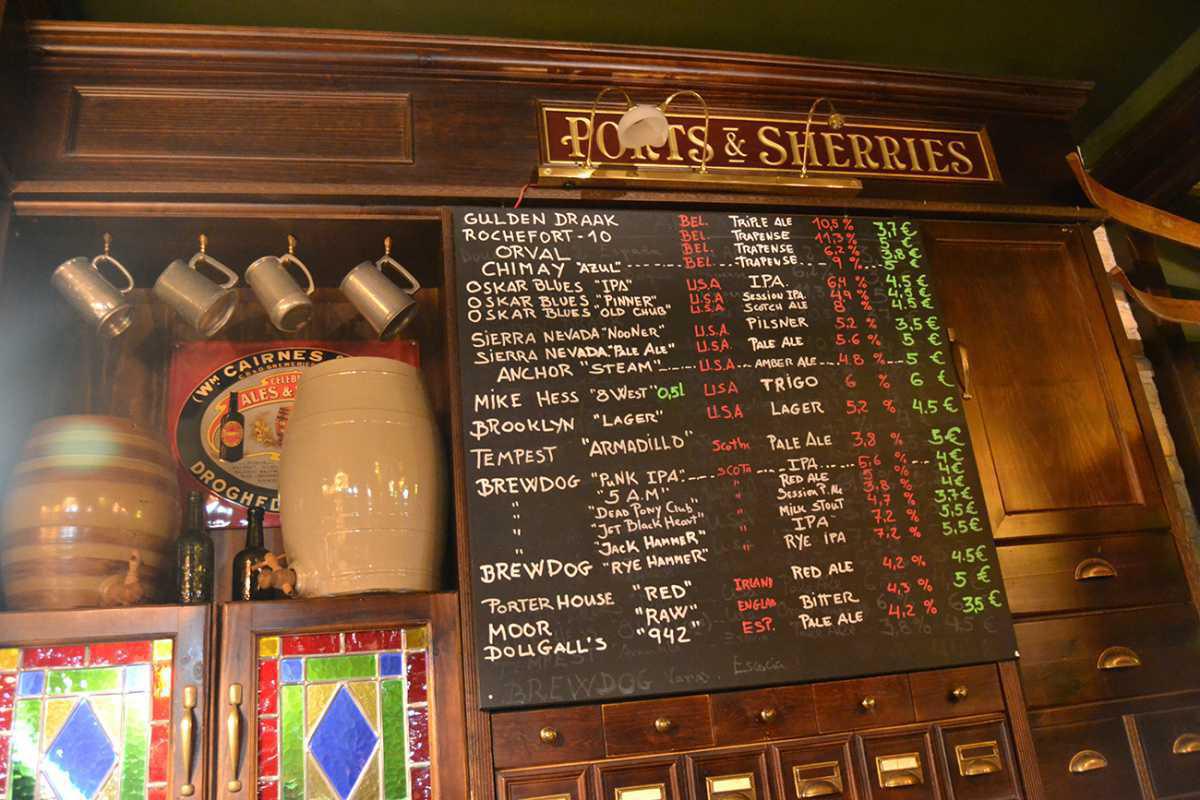 PORTS & SHERRIES
GULDEN DRAAK BEL. TRIPLE ALE 10,5 % 3,7 €
ROCHEFORT-10 BEL. TRAPENSE 11,3 % 5 €
ORVAL BEL. TRAPENSE 6,2 % 3,8 €
CHIMAY "AZUL" BEL. TRAPENSE 9 % 5 €
OSKAR BLUES "IPA" USA IPA. 6,4 % 4.5 €
OSKAR BLUES "PINNER" U.S.A SESSION IPA. 4,9 % 4.5 €
OSKAR BLUES "OLD CHUB" U.S.A SCOTCH ALE 8 % 4.5 €
SIERRA NEVADA "NOONER" U.S.A. PILSNER 5.2 % 3,5 €
SIERRA NEVADA "PALE ALE" U.S.A. PALE ALE 5.6 % 5 €
ANCHOR "STEAM" U.S.A. AMBER ALE 4.8 % 5 €
MIKE HESS "8 WEST" 0,5l USA TRIGO 6 % 6 €
BROOKLYN "LAGER" U.S.A LAGER 5,2 % 4.5 €
TEMPEST "ARMADILLO" PALE ALE 3,8 % 5 €
BREWDOG "PUNK IPA" SCOTA IPA 5,6 % 4 €
" "5 A.M" " RED ALE 5 % 4 €
" "DEAD PONY CLUB" " SESSION 4 €
" "JET BLACK HEART" " MILK STOUT 4,7 % 3,7 €
" "JACK HAMMER" " IPA 7,2 % 5,5 €
BREWDOG "RYE HAMMER" " RYE IPA 7,2 % 5,5 €
PORTER HOUSE "RED" IRLAND RED ALE 4,2 % 4.5 €
MOOR "RAW" ENGLAB BITTER 4,3 % 5 €
DOUGALL'S "942" ESP. PALE ALE 4,2 % 3,5 €
TEMPEST
BREWDOG Escocia
WM CAIRNES
ALES &
DROGHED